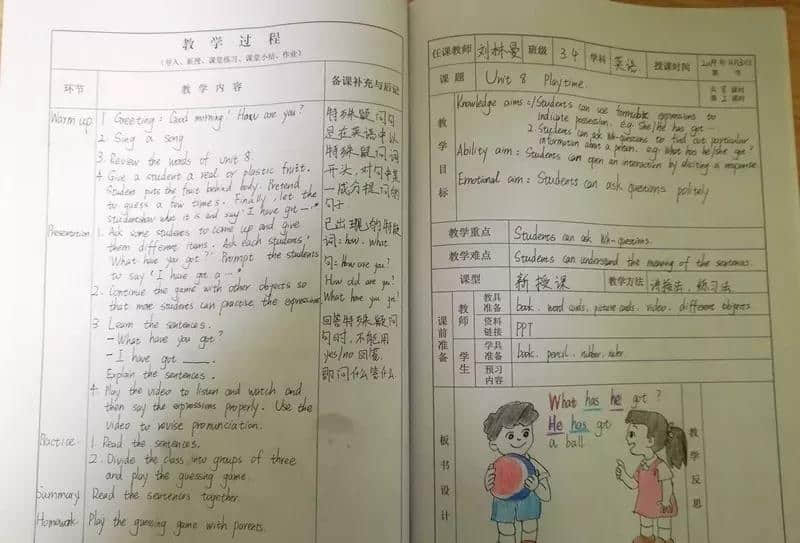 教学过程
(导入、新授、课堂练习、课堂小结、作业)
环节 教学内容 备课补充与后记
Warm up 1 Greeting: Good morning! How are you?
2 Sing a song
3 Review the words of Unit 8.
4 Give a student a real or plastic fruit.
Student puts the fruit behind body. Pretend
to guess a few times. Finally, let the
student show what it is and say 'I have got ...'
Presentation 1. Ask some students to come up and give
them different items. Ask each students,
'What have you got?' Prompt the students
to say 'I have got a ...'
2. Continue the game with other objects so
that more students can practise the expressions
3 Learn the sentences.
- What have you got?
- I have got ____.
Explain the sentences.
4. Play the video to listen and watch and
then say the expressions properly. Use the
video to revise pronunciation.
Practice 1. Read the sentences.
2. Divide the class into groups of three
and play the guessing game.
Summary Read the sentences together.
Homework Play the guessing game with parents.
特殊疑问句
是在英语中以
特殊疑问词
开头,对句中某
一成分提问的
句子
已出现的特疑
词: how. what
句: How are you?
How old are you?
What have you got?
回答特殊疑问
句时,不能用
yes/no 回答,
即问什么答什么
任课教师 刘林曼 班级 3.4 学科 英语 授课时间 2019年11月
课题 Unit 8 Playtime.
第2课时
教学目标
Knowledge aims: 1 Students can use expressions to
indicate possession. e.g. She/He has got ...
2. Students can ask wh-questions to find out particular
information about a person. e.g. What has he/she got?
Ability aim: Students can open an interaction by eliciting a response
Emotional aim: Students can ask questions politely
教学重点 Students can ask Wh-questions.
教学难点 Students can understand the meaning of the sentences.
课型 新授课 教学方法 讲授法, 练习法
课前准备
教师
教具准备 book. word cards, picture cards. video. different objects
资料链接 PPT
学生
学具准备 book. pencil. rubber. ruler.
预习内容
板书设计
What has he got?
He has got
a ball
教学反思